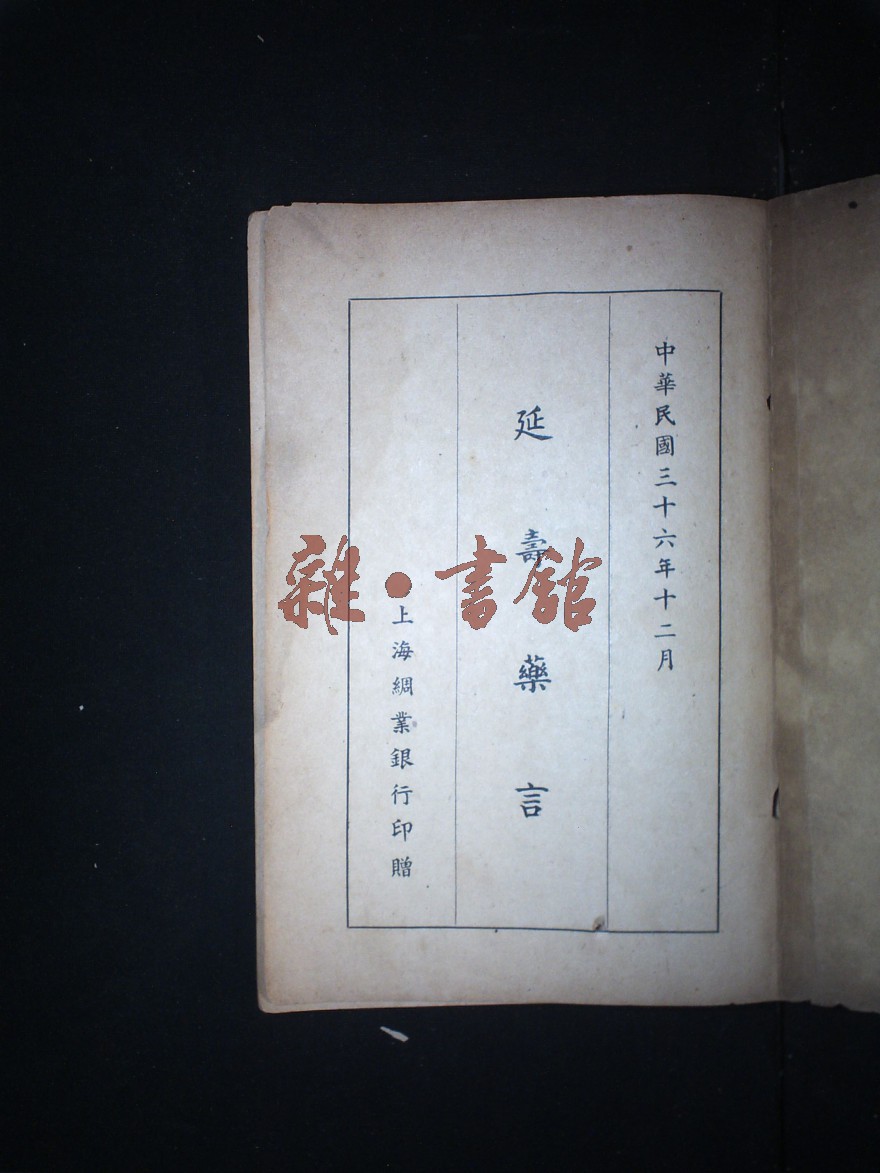 中華民國三十六年十二月
延壽藥言
上海綢業銀行印贈
雜·書館